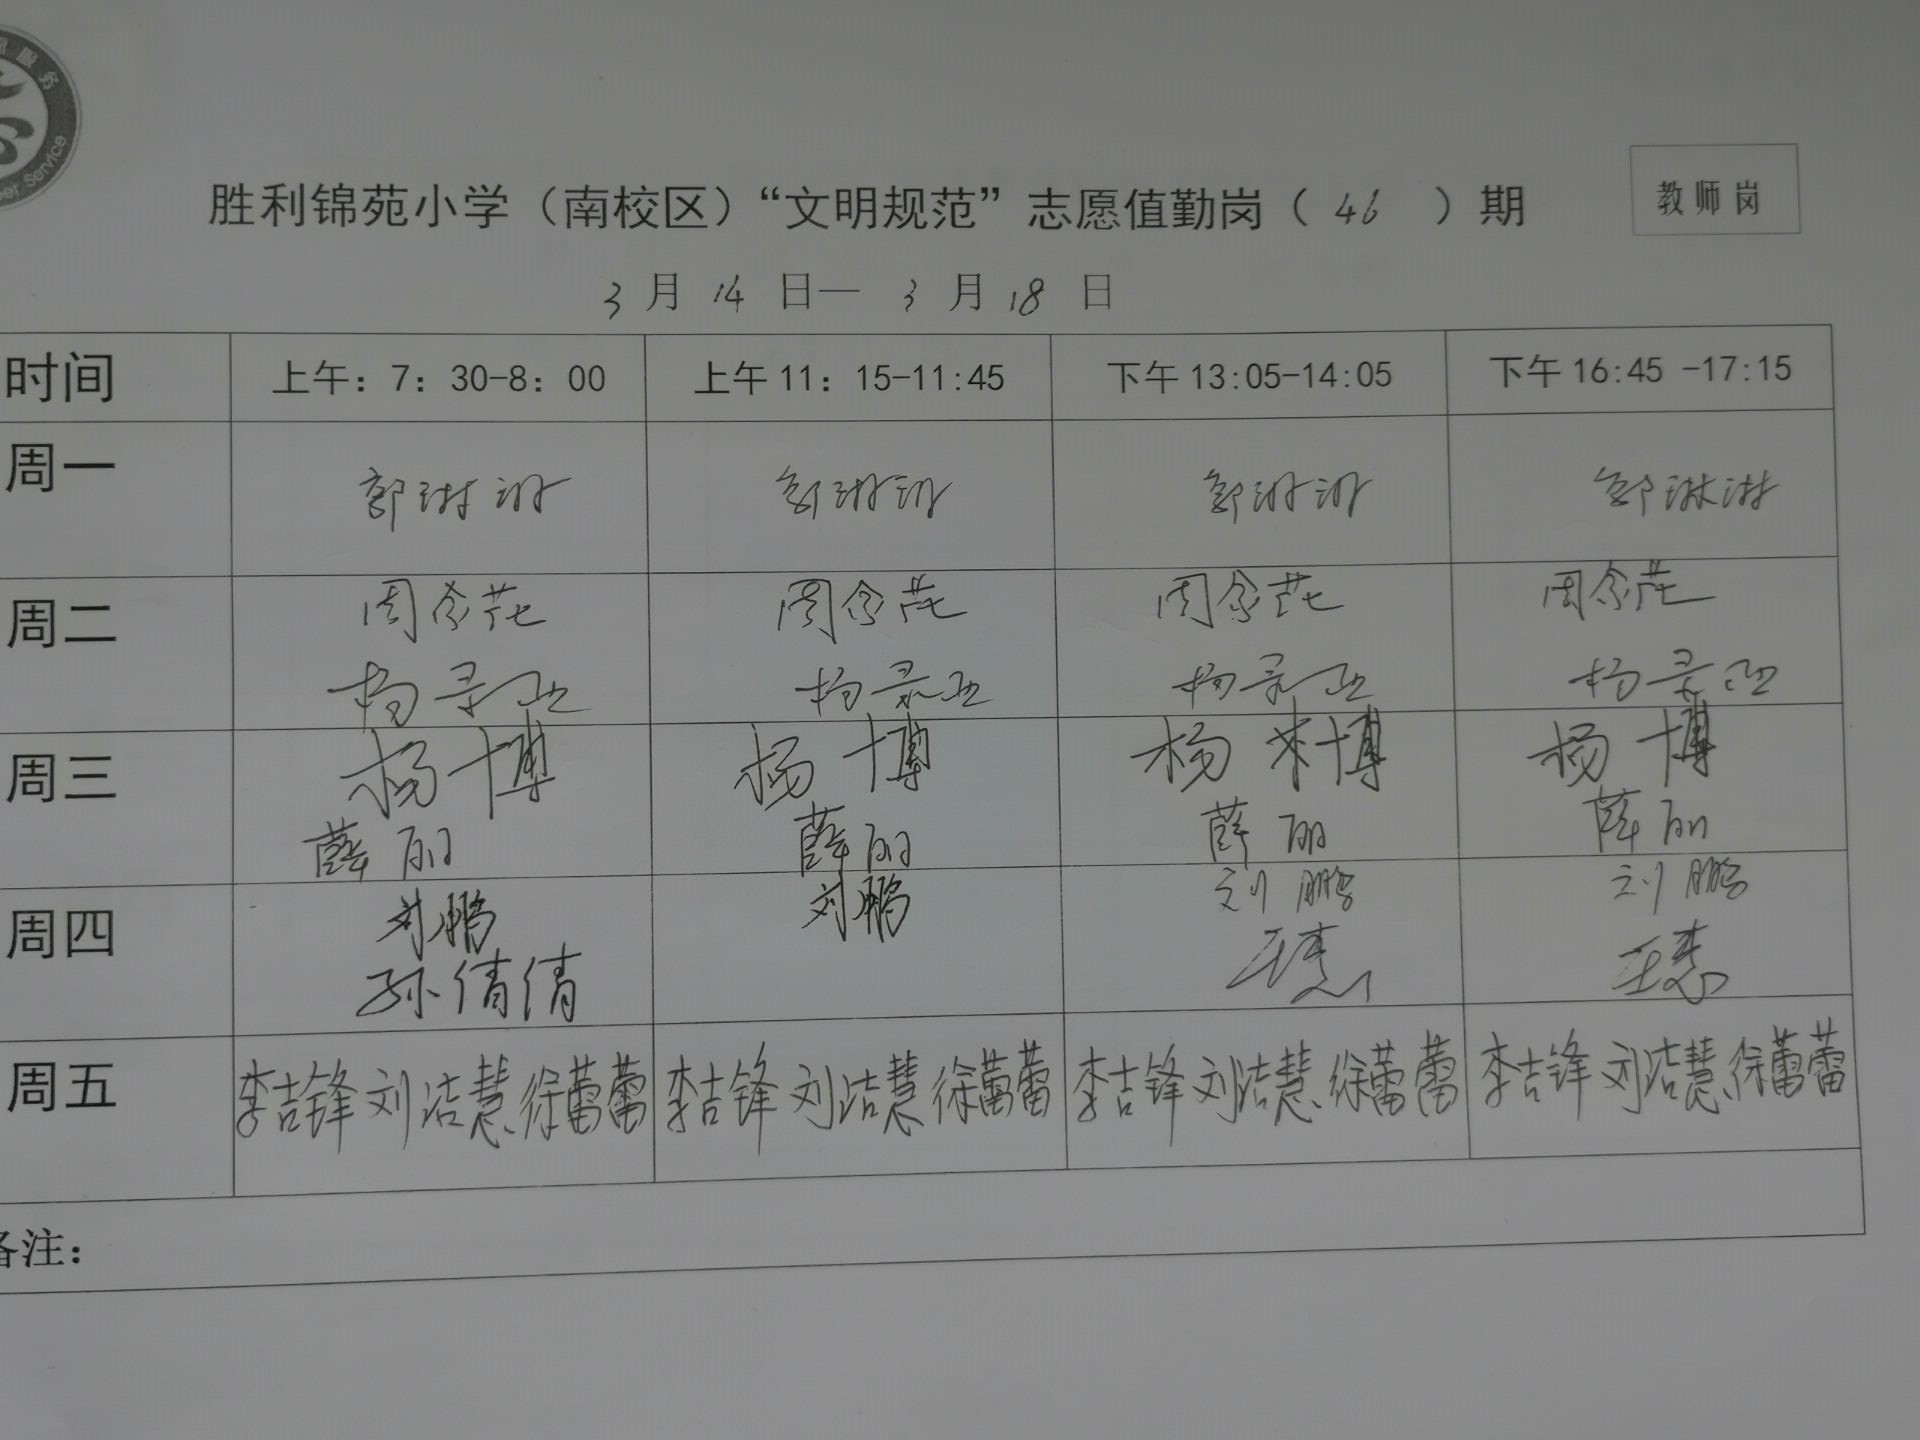 服务
er Service
胜利锦苑小学（南校区）“文明规范”志愿值勤岗（46）期
教师岗
3月14日— 3月18日
时间 上午：7：30-8：00 上午11：15-11:45 下午13:05-14:05 下午16:45 -17:15
周一 郭琳琳 郭琳琳 郭琳琳 郭琳琳
周二 周念茈 周念茈 周念茈 周念茈
杨景亚 杨景亚 杨景亚 杨景亚
周三 杨博 杨博 杨博 杨博
薛丽 薛丽 薛丽 薛丽
周四 刘鹏 刘鹏 刘鹏 刘鹏
孙倩倩 王惠 王惠
周五 李吉锋 刘洁慧 徐蕾蕾 李吉锋 刘洁慧 徐蕾蕾 李吉锋 刘洁慧 徐蕾蕾 李吉锋 刘洁慧 徐蕾蕾
备注：